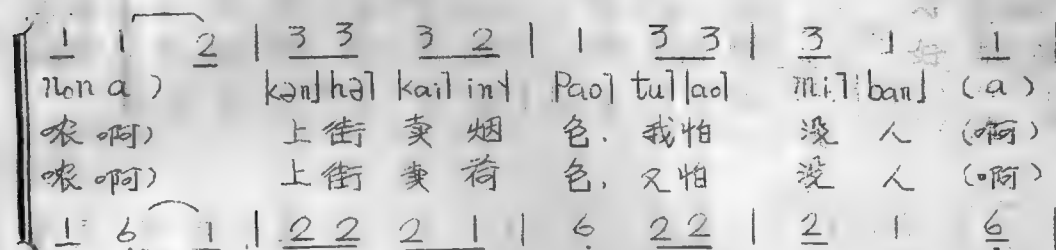 1 1 2 | 3 3 3 2 | 1 3 3 | 3 1 1
non a) kən˩ hə˥ kai˥ in˦ Pao˥ tu˥ lao˥ mi˥ ban˩ (a)
哝 啊) 上街 卖 烟 包. 我怕 没 人 (啊)
哝 啊) 上街 卖 荷 包, 又怕 没 人 (啊)
1 6 1 | 2 2 2 1 | 6 2 2 | 2 1 6